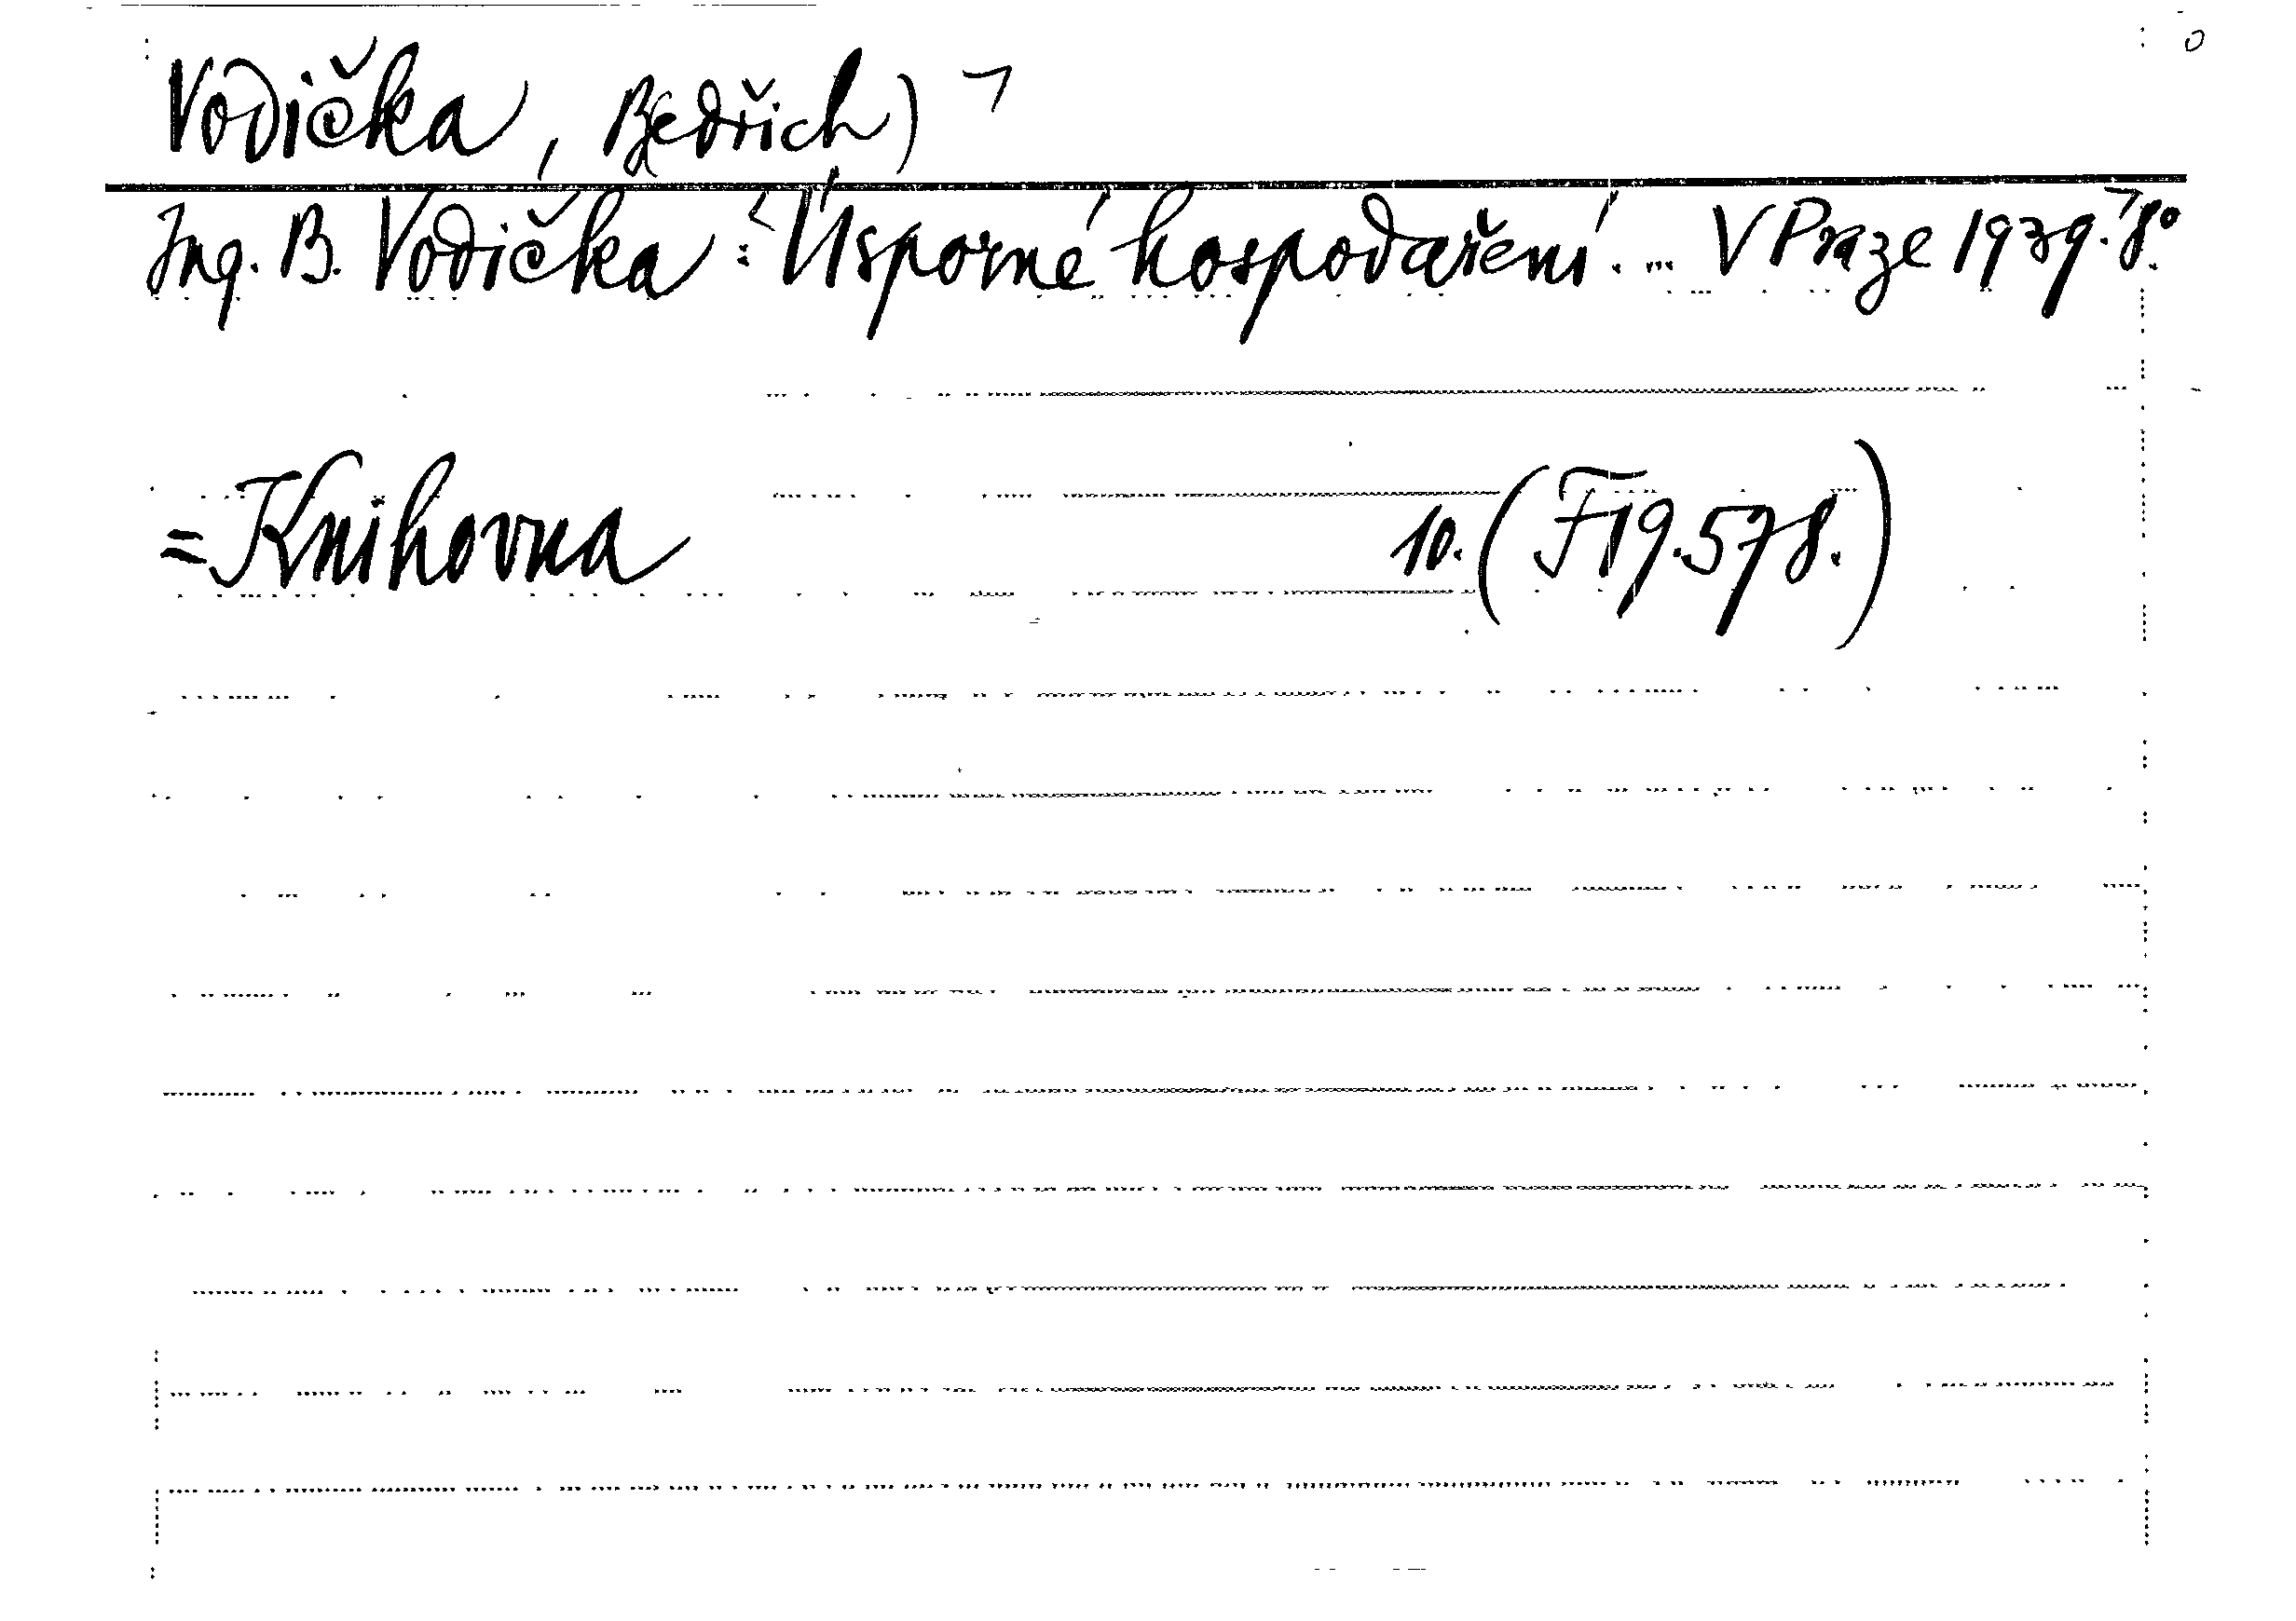 Vodička, B(edřich) ¬
Ing. B. Vodička: Úsporné hospodaření. ... V Praze 1939. 8°.
=Knihovna 10. (F 19.578.)